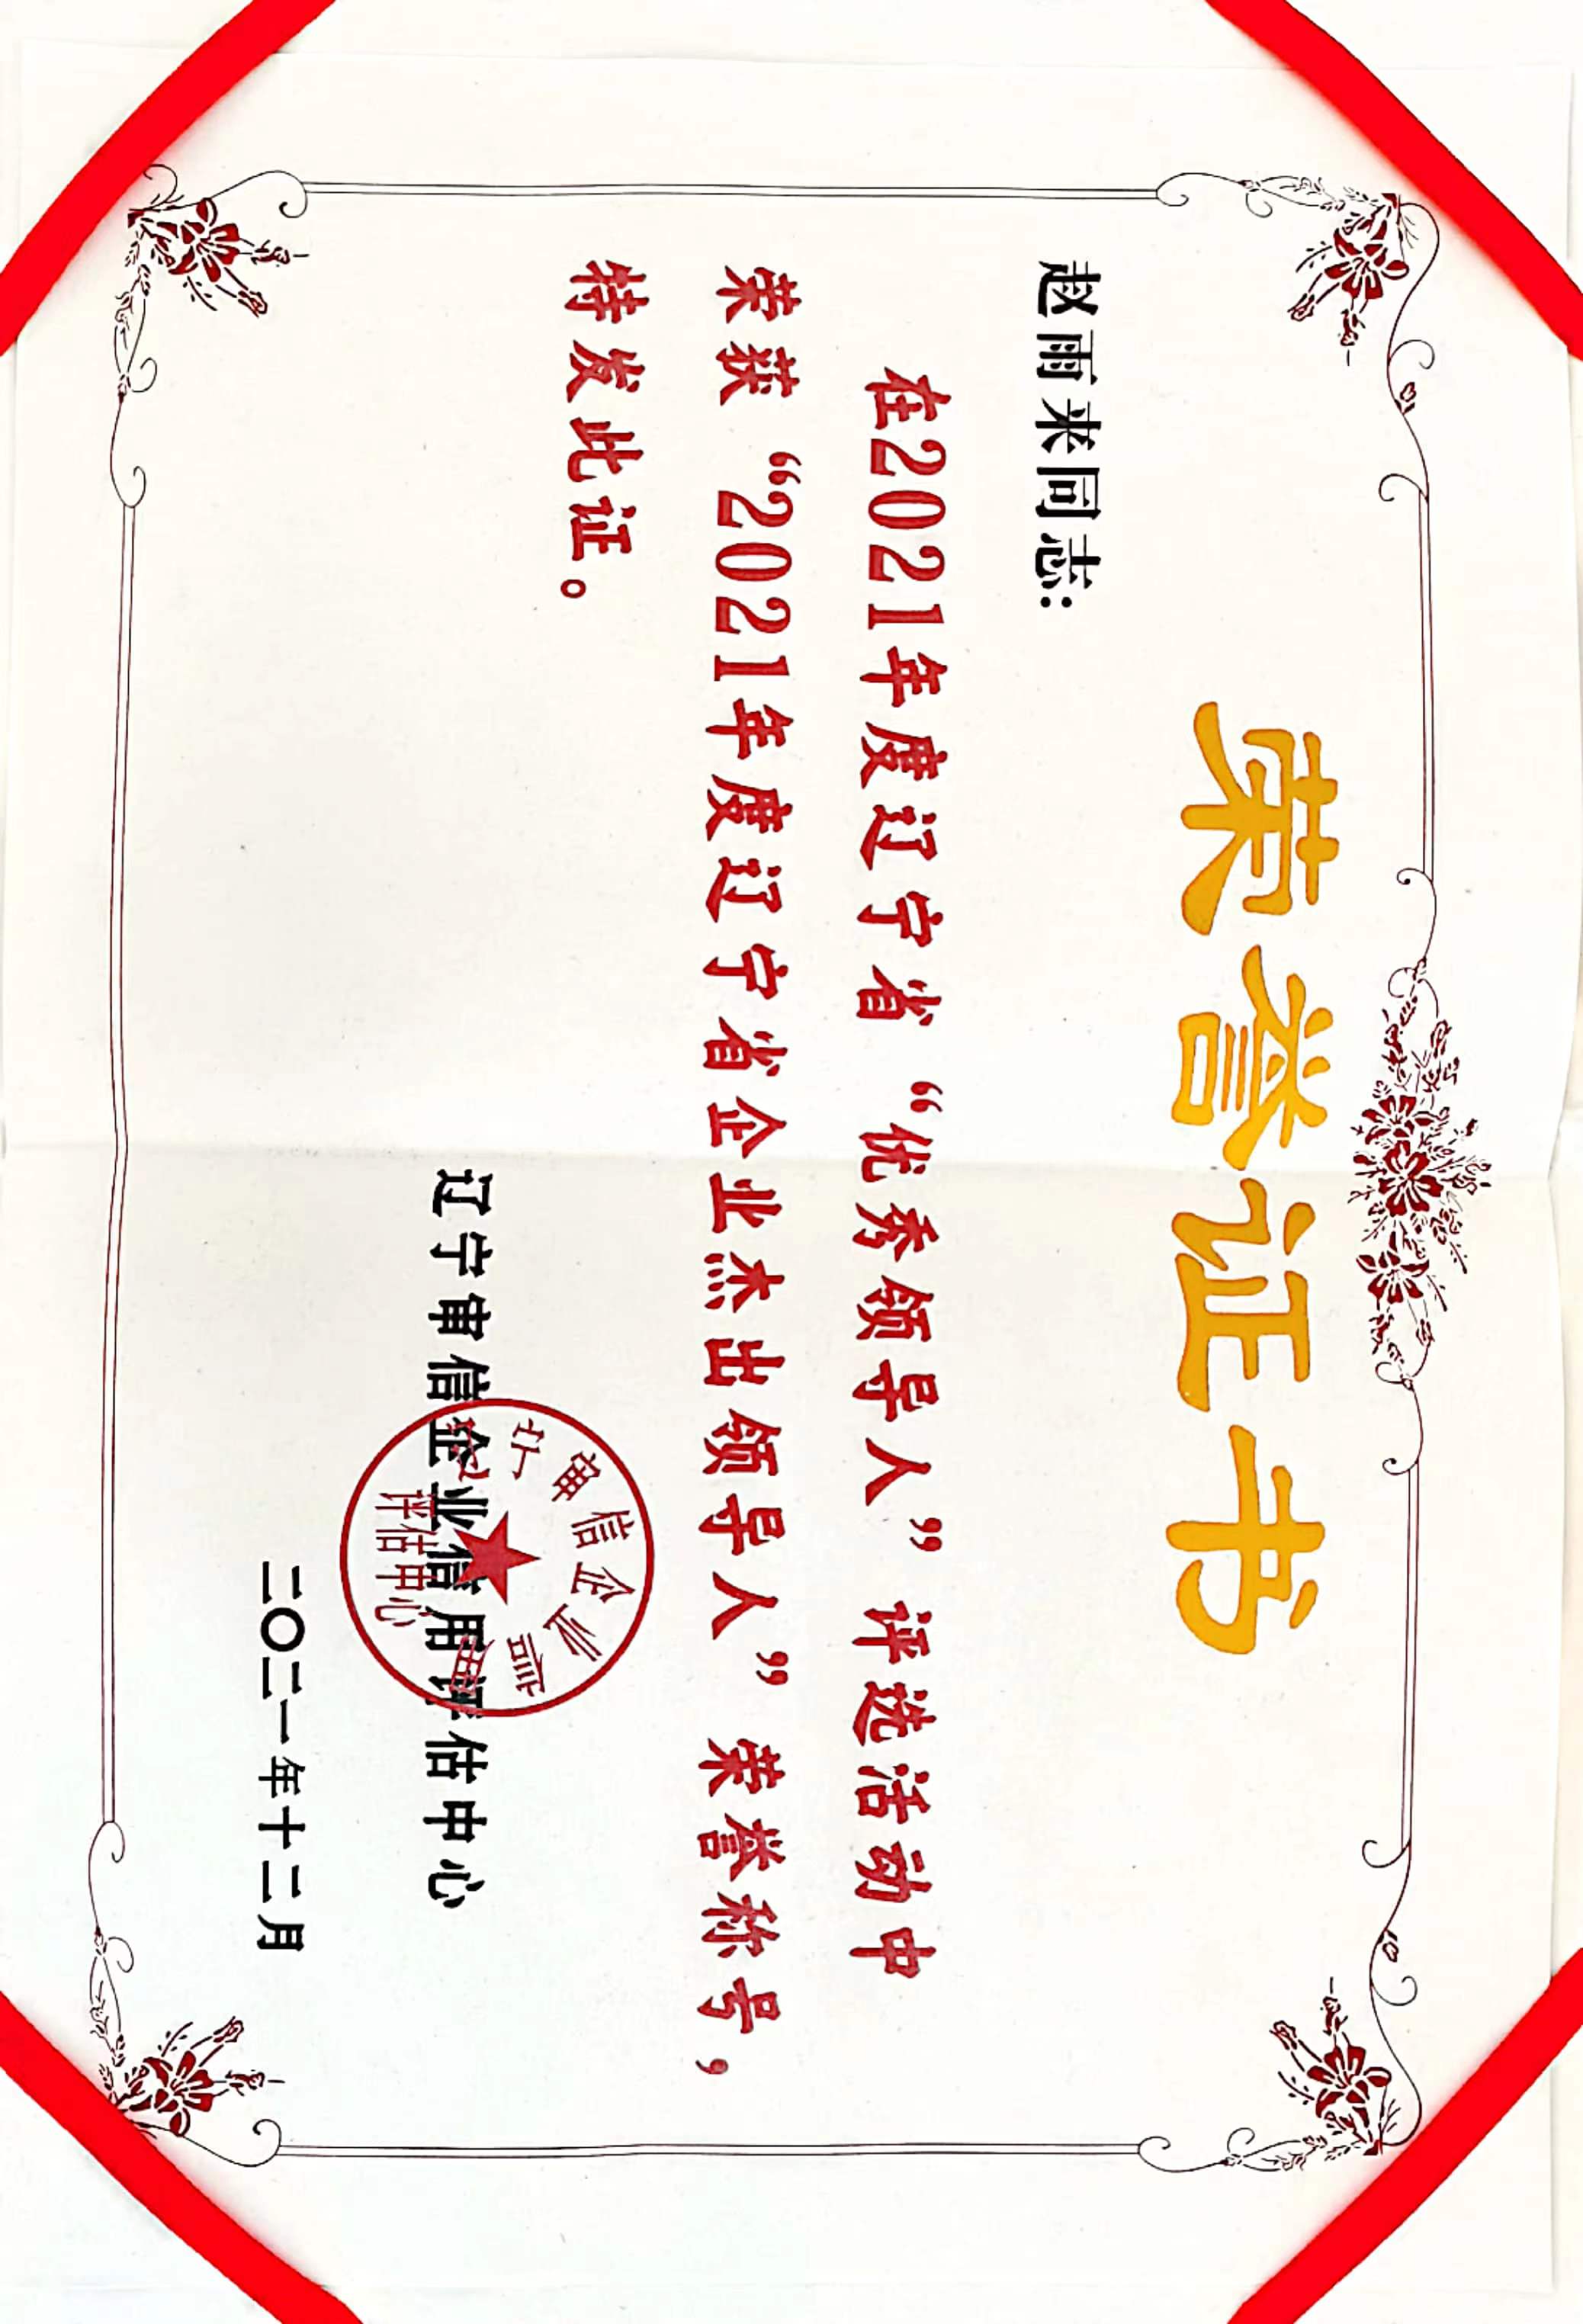 荣誉证书
赵雨来同志:
在2021年度辽宁省“优秀领导人”评选活动中
荣获“2021年度辽宁省企业杰出领导人”荣誉称号，
特发此证。
辽宁审信企业信用评估中心
二〇二一年十二月
宁审信企业信用
评估中心